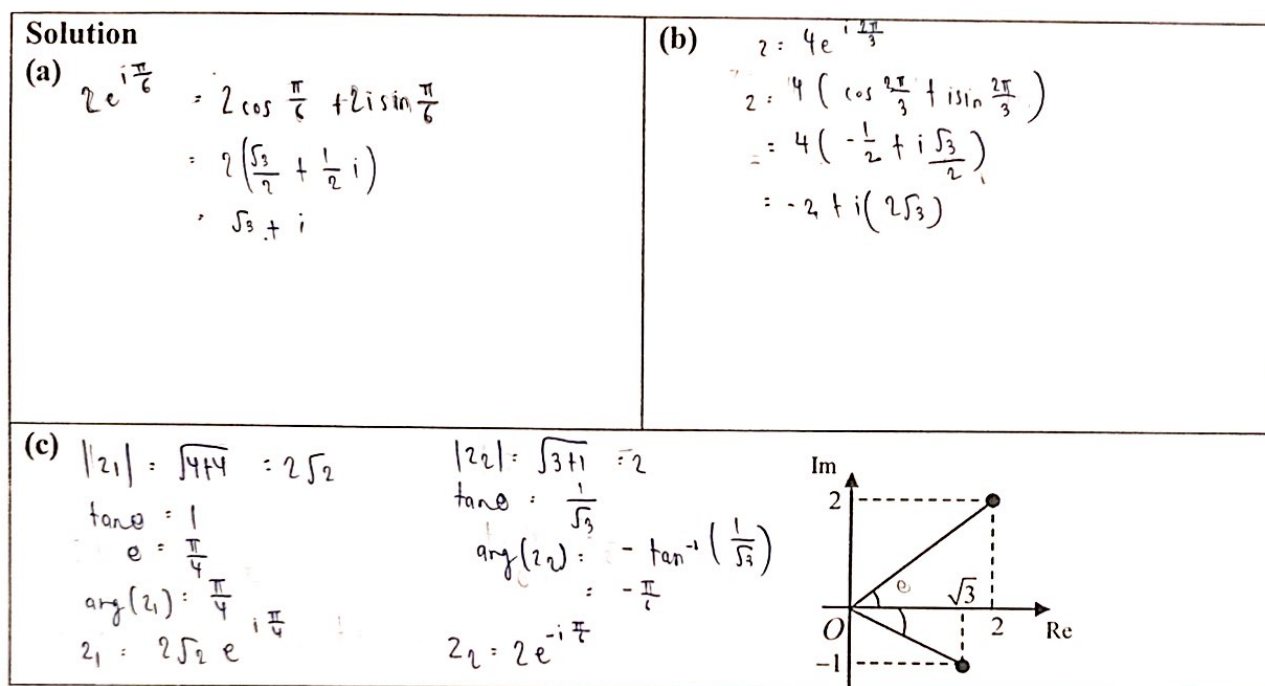 Solution
(a) 2e^{i π/6} = 2 cos π/6 + 2i sin π/6
= 2(√3/2 + 1/2 i)
= √3 + i
(b) z = 4e^{i 2π/3}
z = 4(cos 2π/3 + i sin 2π/3)
= 4(-1/2 + i √3/2)
= -2 + i(2√3)
(c) |z₁| = √(4+4) = 2√2
tanθ = 1
θ = π/4
arg(z₁) = π/4
z₁ = 2√2 e^{i π/4}
|z₂| = √(3+1) = 2
tanθ = 1/√3
arg(z₂) = - tan⁻¹(1/√3)
= - π/6
z₂ = 2e^{-i π/6}
Im
2
θ
√3
O
2
Re
-1